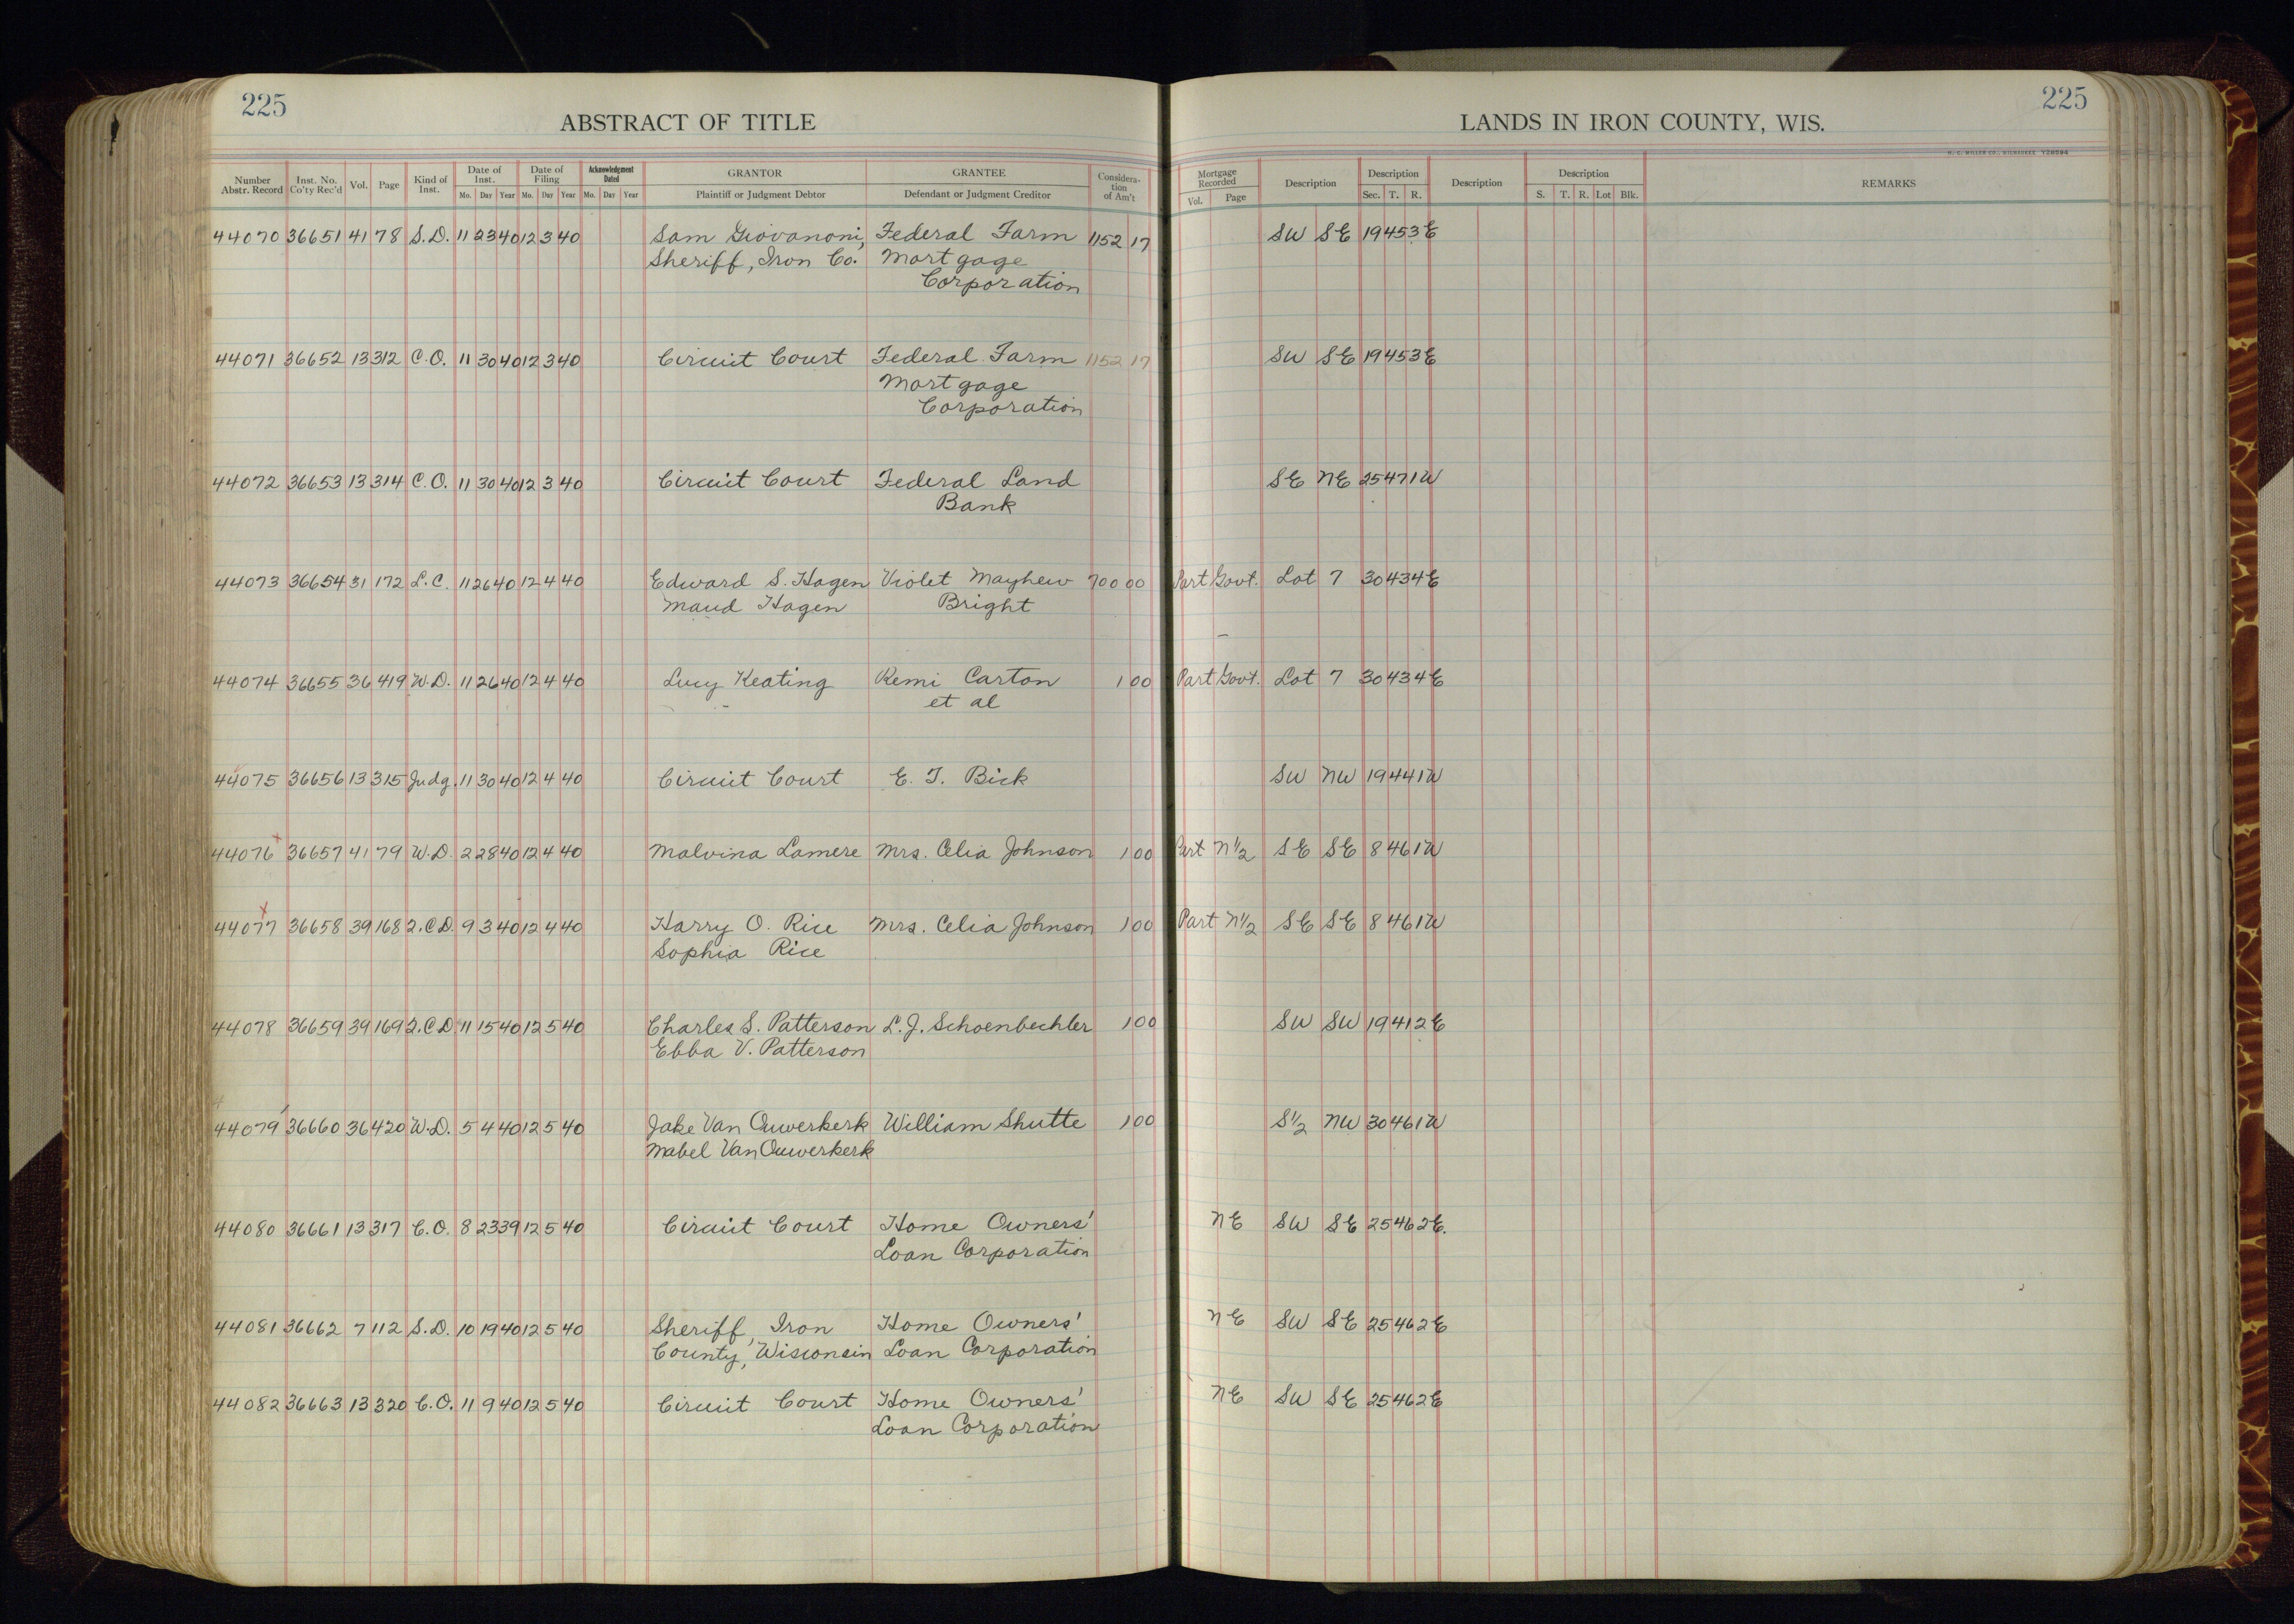 225
225
ABSTRACT OF TITLE
LANDS IN IRON COUNTY, WIS.
H. C. MILLER CO., MILWAUKEE
Number Abstr. Record Inst. No. Co'ty Rec'd Vol. Page Kind of Inst. Date of Inst. Mo. Day Year Date of Filing Mo. Day Year Acknowledgment Dated Mo. Day Year GRANTOR Plaintiff or Judgment Debtor GRANTEE Defendant or Judgment Creditor Consideration of Am't Mortgage Recorded Vol. Page Description Description Sec. T. R. Description Description S. T. R. Lot Blk. REMARKS
44070 36651 41 78 S.D. 11 23 40 12 3 40 Sam Giovanoni, Federal Farm 1152 17 SW SE 19 45 3E
Sheriff, Iron Co. Mortgage
Corporation
44071 36652 13 312 C.O. 11 30 40 12 3 40 Circuit Court Federal Farm 1152 17 SW SE 19 45 3E
Mortgage
Corporation
44072 36653 13 314 C.O. 11 30 40 12 3 40 Circuit Court Federal Land SE NE 25 47 1W
Bank
44073 36654 31 172 L.C. 11 26 40 12 4 40 Edward S. Hagen Violet Mayhew 700 00 Part Govt. Lot 7 30 43 4E
Maud Hagen Bright
44074 36655 36 419 W.D. 11 26 40 12 4 40 Lucy Keating Remi Carton 1 00 Part Govt. Lot 7 30 43 4E
et al
44075 36656 13 315 Judg. 11 30 40 12 4 40 Circuit Court E. T. Bick SW NW 19 44 1W
44076 36657 41 79 W.D. 2 28 40 12 4 40 Malvina Lamere Mrs. Celia Johnson 1 00 Part N 1/2 SE SE 8 46 1W
44077 36658 39 168 2.C.D. 9 3 40 12 4 40 Harry O. Rice Mrs. Celia Johnson 1 00 Part N 1/2 SE SE 8 46 1W
Sophia Rice
44078 36659 39 169 2.C.D. 11 15 40 12 5 40 Charles S. Patterson L. J. Schoenbechler 1 00 SW SW 19 41 2E
Ebba V. Patterson
44079 36660 36 420 W.D. 5 4 40 12 5 40 Jake Van Ouwerkerk William Shutte 1 00 S 1/2 NW 30 46 1W
Mabel Van Ouwerkerk
44080 36661 13 317 C.O. 8 23 39 12 5 40 Circuit Court Home Owners' NE SW SE 25 46 2E.
Loan Corporation
44081 36662 7 112 S.D. 10 19 40 12 5 40 Sheriff, Iron Home Owners' NE SW SE 25 46 2E
County, Wisconsin Loan Corporation
44082 36663 13 320 C.O. 11 9 40 12 5 40 Circuit Court Home Owners' NE SW SE 25 46 2E
Loan Corporation